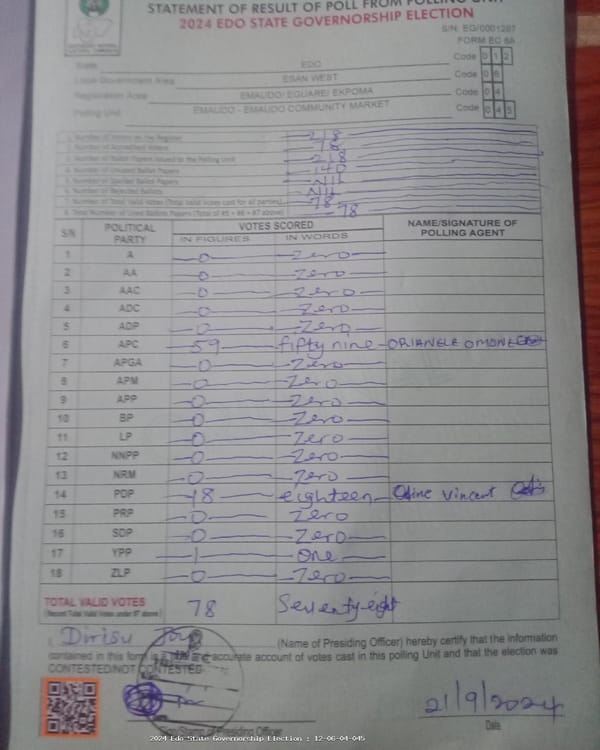 STATEMENT OF RESULT OF POLL FROM POLLING UNIT
2024 EDO STATE GOVERNORSHIP ELECTION
S/N: EG/0001287
FORM EC 8A
State EDO Code 0 1 2
Local Government Area ESAN WEST Code 0 6
Registration Area EMAUDO/ EGUARE/ EKPOMA Code 0 4
Polling Unit EMAUDO - EMAUDO COMMUNITY MARKET Code 0 4 5
1. Number of Voters on the Register 218
2. Number of Accredited Voters 78
3. Number of Ballot Papers Issued to the Polling Unit 218
4. Number of Unused Ballot Papers 140
5. Number of Spoiled Ballot Papers Nil
6. Number of Rejected Ballots Nil
7. Number of Total Valid Votes (Total valid votes cast for all parties) 78
8. Total Number of Used Ballot Papers (Total of #5 + #6 + #7 above) 78
S/N POLITICAL PARTY VOTES SCORED NAME/SIGNATURE OF POLLING AGENT
IN FIGURES IN WORDS
1 A 0 Zero
2 AA 0 Zero
3 AAC 0 Zero
4 ADC 0 Zero
5 ADP 0 Zero
6 APC 59 fifty nine
7 APGA 0 Zero
8 APM 0 Zero
9 APP 0 Zero
10 BP 0 Zero
11 LP 0 Zero
12 NNPP 0 Zero
13 NRM 0 Zero
14 PDP 18 eighteen Vincent
15 PRP 0 Zero
16 SDP 0 Zero
17 YPP 1 One
18 ZLP 0 Zero
TOTAL VALID VOTES 78 Seventy eight
(Record Total Valid Votes under #7 above)
I, Dirisu Joy (Name of Presiding Officer) hereby certify that the information
contained in this form is a true and accurate account of votes cast in this polling Unit and that the election was
CONTESTED/NOT CONTESTED
21/9/2024
of Presiding Officer Date
2024 Edo State Governorship Election : 12-06-04-045